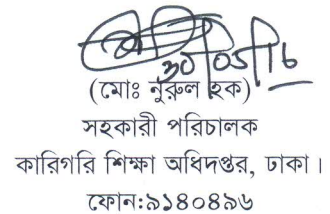 ৩০/০৫/১৮
(মোঃ নুরুল হক)
সহকারী পরিচালক
কারিগরি শিক্ষা অধিদপ্তর, ঢাকা।
ফোন:৯১৪০৪৯৬